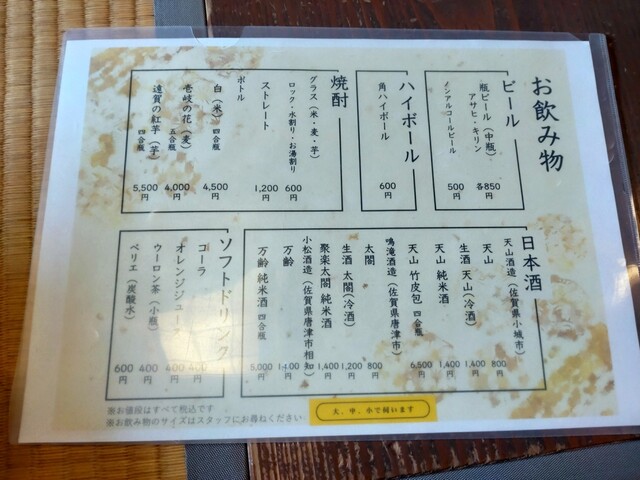 お飲み物
ビール
瓶ビール（中瓶）
アサヒ・キリン 各850円
ノンアルコールビール 500円
ハイボール
角ハイボール 600円
焼酎
グラス（米・麦・芋）
ロック・水割り・お湯割り 600円
ストレート 1,200円
ボトル
白（米） 四合瓶 4,500円
壱岐の花（麦） 五合瓶 4,000円
遠賀の紅芋（芋） 四合瓶 5,500円
日本酒
天山酒造（佐賀県小城市）
天山 800円
生酒 天山（冷酒） 1,400円
天山 純米酒 1,400円
天山 竹皮包 四合瓶 6,500円
鳴滝酒造（佐賀県唐津市）
太閤 800円
生酒 太閤（冷酒） 1,200円
聚楽太閤 純米酒 1,400円
小松酒造（佐賀県唐津市相知）
万齢 1,400円
万齢 純米酒 四合瓶 5,000円
ソフトドリンク
コーラ 400円
オレンジジュース 400円
ウーロン茶（小瓶） 400円
ペリエ（炭酸水） 600円
大、中、小で伺います
※お値段はすべて税込です
※お飲み物のサイズはスタッフにお尋ねください